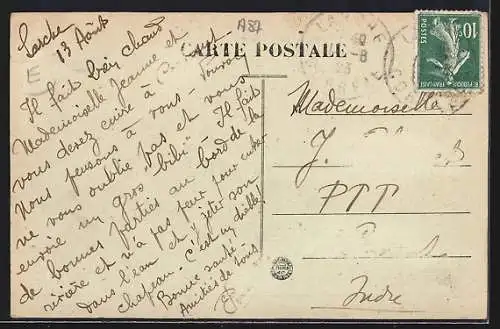 A87
Larche
13 Août
CARTE POSTALE
Il fait bien chaud
Mademoiselle Jeanne et
vous devez cuire à C.
Nous pensons à vous souvent
ne vous oublie pas et vous
envoie un gros "bibi". Il fait
de bonnes parties au bord de la
rivière et n'a pas peur pour entrer
dans l'eau et y jeter son
chapeau. C'est un diable!
Bonne santé
Amitiés de tous
E
10c
REPUBLIQUE FRANÇAISE
Mademoiselle
J.
PTT
Indre